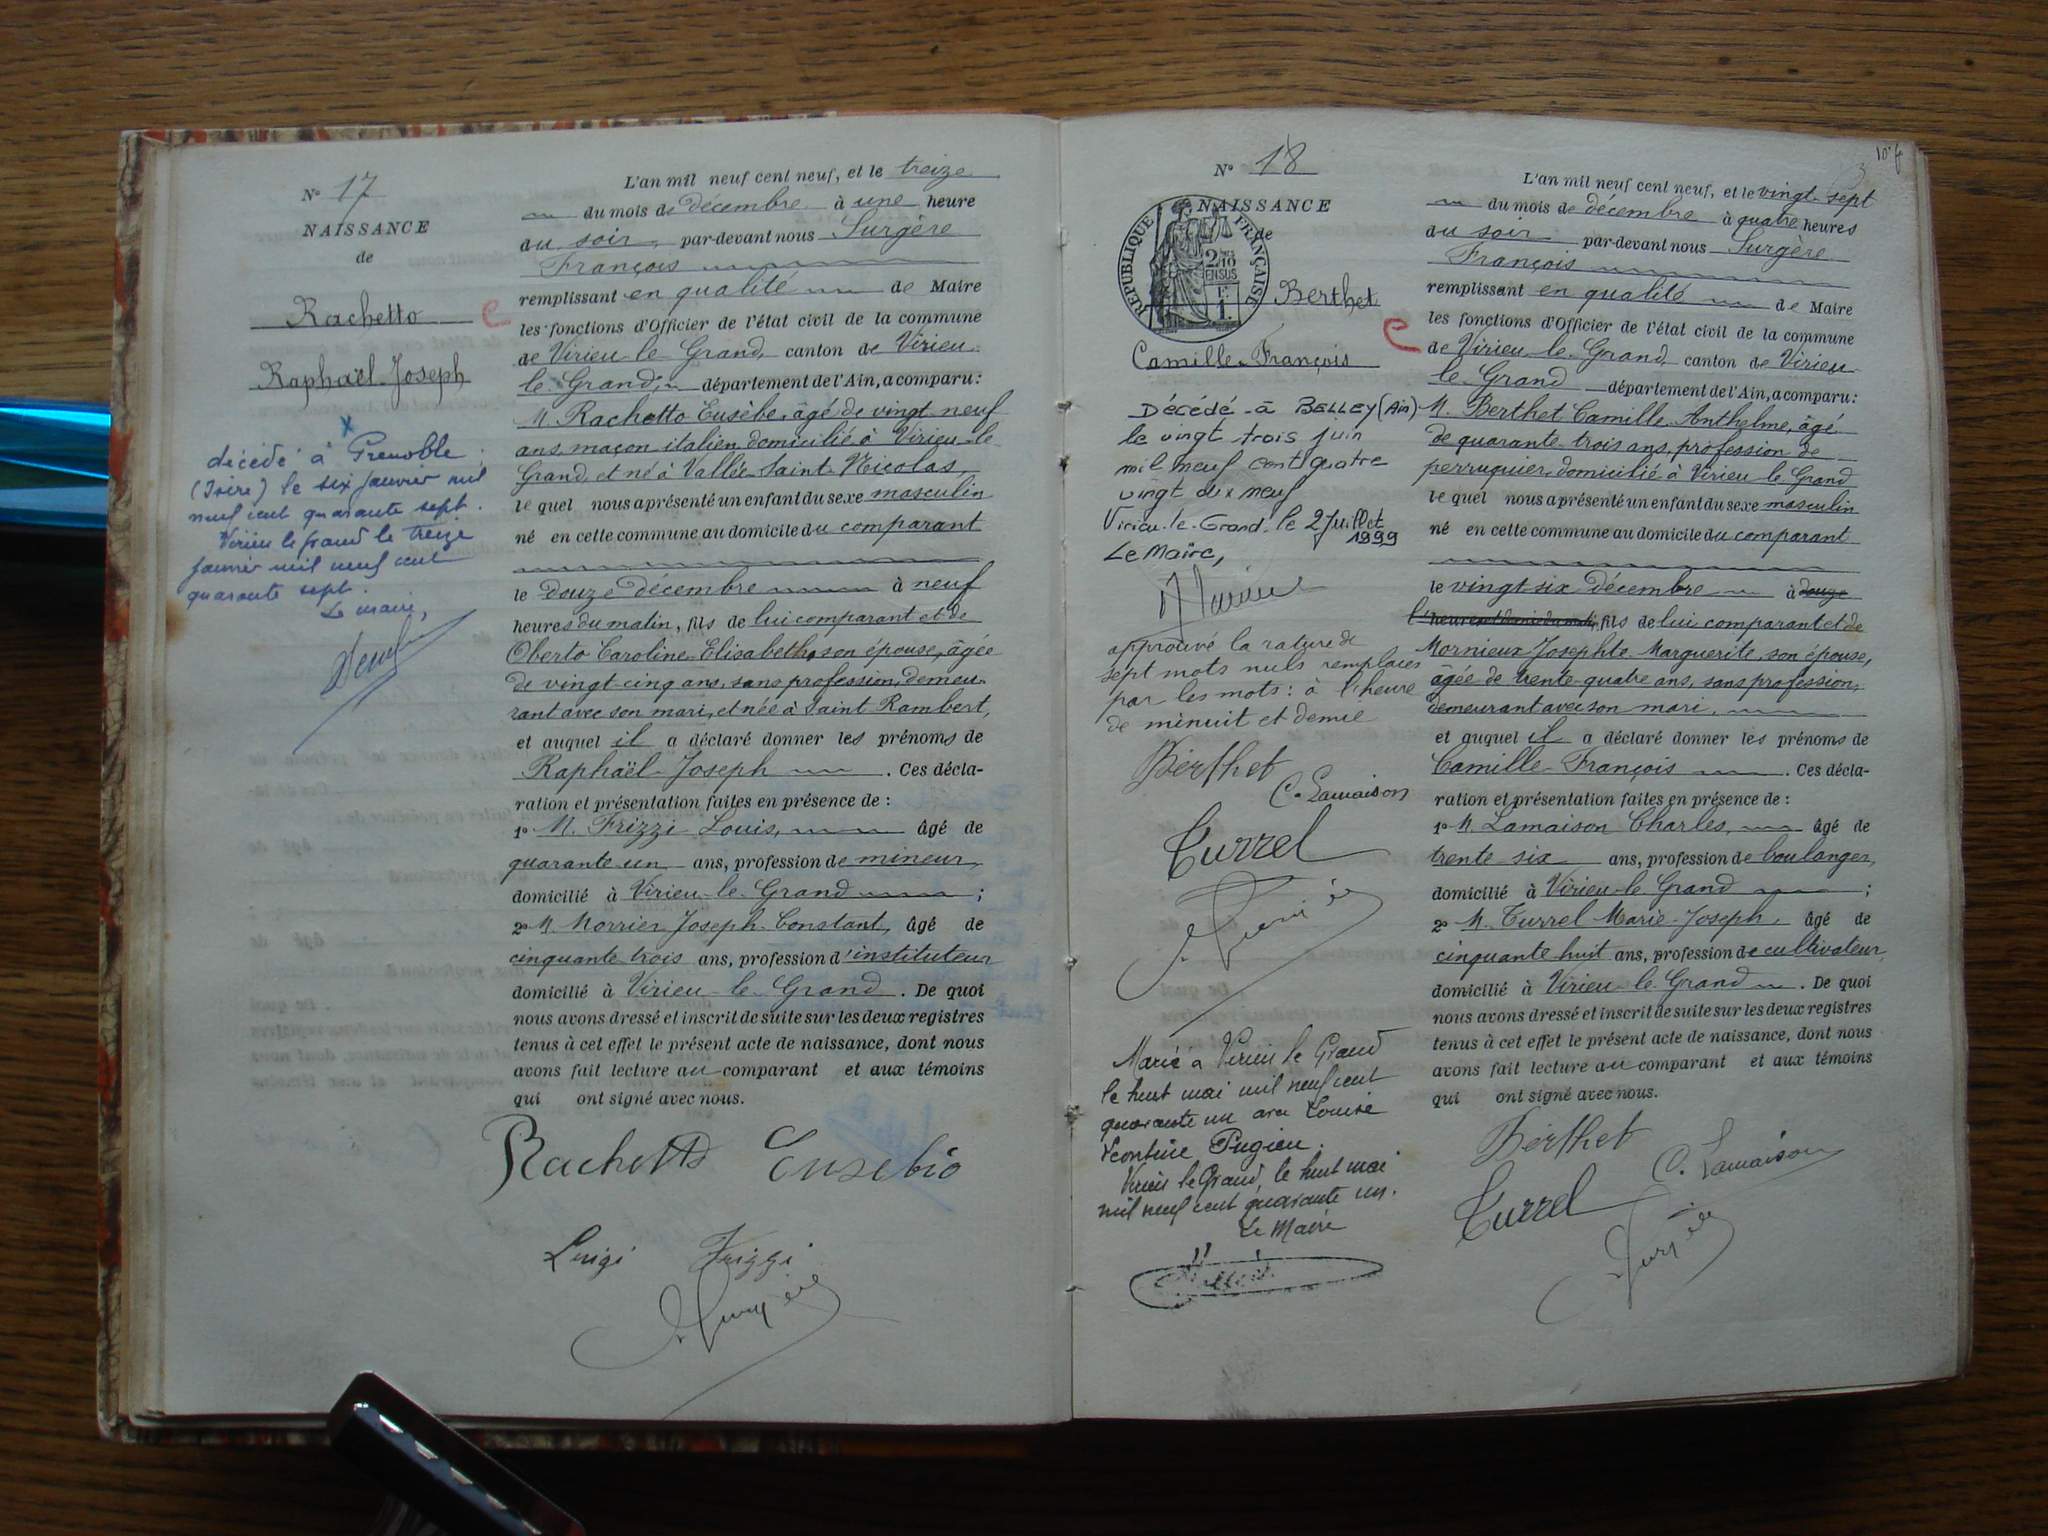 N° 17
NAISSANCE
de
Rachetto
Raphaël-Joseph
décédé à Grenoble
(Isère) le six janvier mil
neuf cent quarante sept.
Virieu le Grand le treize
janvier mil neuf cent
quarante sept.
Le maire,
L'an mil neuf cent neuf, et le treize
du mois de décembre à une heure
du soir, par-devant nous Surgère
François
remplissant en qualité de Maire
les fonctions d'Officier de l'état civil de la commune
de Virieu-le-Grand, canton de Virieu-
le-Grand, département de l'Ain, a comparu :
M. Rachetto Eusèbe, âgé de vingt-neuf
ans, maçon italien, domicilié à Virieu-le-
Grand, et né à Vallée-Saint-Nicolas,
lequel nous a présenté un enfant du sexe masculin
né en cette commune au domicile du comparant
le douze décembre à neuf
heures du matin, fils de lui comparant et de
Oberto Caroline-Elisabeth, son épouse, âgée
de vingt-cinq ans, sans profession, demeu-
rant avec son mari, et née à Saint Rambert,
et auquel il a déclaré donner les prénoms de
Raphaël-Joseph. Ces décla-
ration et présentation faites en présence de :
1° M. Frizzi Louis, âgé de
quarante-un ans, profession de mineur,
domicilié à Virieu-le-Grand ;
2° M. Morrier Joseph-Constant, âgé de
cinquante-trois ans, profession d'instituteur
domicilié à Virieu-le-Grand. De quoi
nous avons dressé et inscrit de suite sur les deux registres
tenus à cet effet le présent acte de naissance, dont nous
avons fait lecture au comparant et aux témoins
qui ont signé avec nous.
Rachetto Eusebio
Luigi Frizzi
N° 18
NAISSANCE
de
RÉPUBLIQUE FRANÇAISE
Berthet
Camille-François
Décédé à BELLEY (Ain)
le vingt trois juin
mil neuf cent quatre
vingt dix neuf
Virieu-le-Grand le 2 Juillet
1999
Le Maire,
approuvé la rature de
sept mots nuls remplacés
par les mots : à l'heure
de minuit et demie
Berthet
C. Lamaison
Turrel
Marié à Virieu le Grand
le huit mai mil neuf cent
quarante un avec Louise
Léontine Pugieu.
Virieu le Grand, le huit mai
mil neuf cent quarante un.
Le Maire
L'an mil neuf cent neuf, et le vingt-sept
du mois de décembre à quatre heures
du soir par-devant nous Surgère
François
remplissant en qualité de Maire
les fonctions d'Officier de l'état civil de la commune
de Virieu-le-Grand, canton de Virieu-
le-Grand département de l'Ain, a comparu :
M. Berthet Camille-Anthelme, âgé
de quarante-trois ans, profession de
perruquier, domicilié à Virieu-le-Grand
lequel nous a présenté un enfant du sexe masculin
né en cette commune au domicile du comparant
le vingt six décembre à douze
heures fils de lui comparant et de
Mornieux Josephte-Marguerite, son épouse,
âgée de trente-quatre ans, sans profession,
demeurant avec son mari,
et auquel il a déclaré donner les prénoms de
Camille-François. Ces décla-
ration et présentation faites en présence de :
1° M. Lamaison Charles, âgé de
trente-six ans, profession de boulanger,
domicilié à Virieu-le-Grand ;
2° M. Turrel Marie-Joseph, âgé de
cinquante-huit ans, profession de cultivateur,
domicilié à Virieu-le-Grand. De quoi
nous avons dressé et inscrit de suite sur les deux registres
tenus à cet effet le présent acte de naissance, dont nous
avons fait lecture au comparant et aux témoins
qui ont signé avec nous.
Berthet
C. Lamaison
Turrel